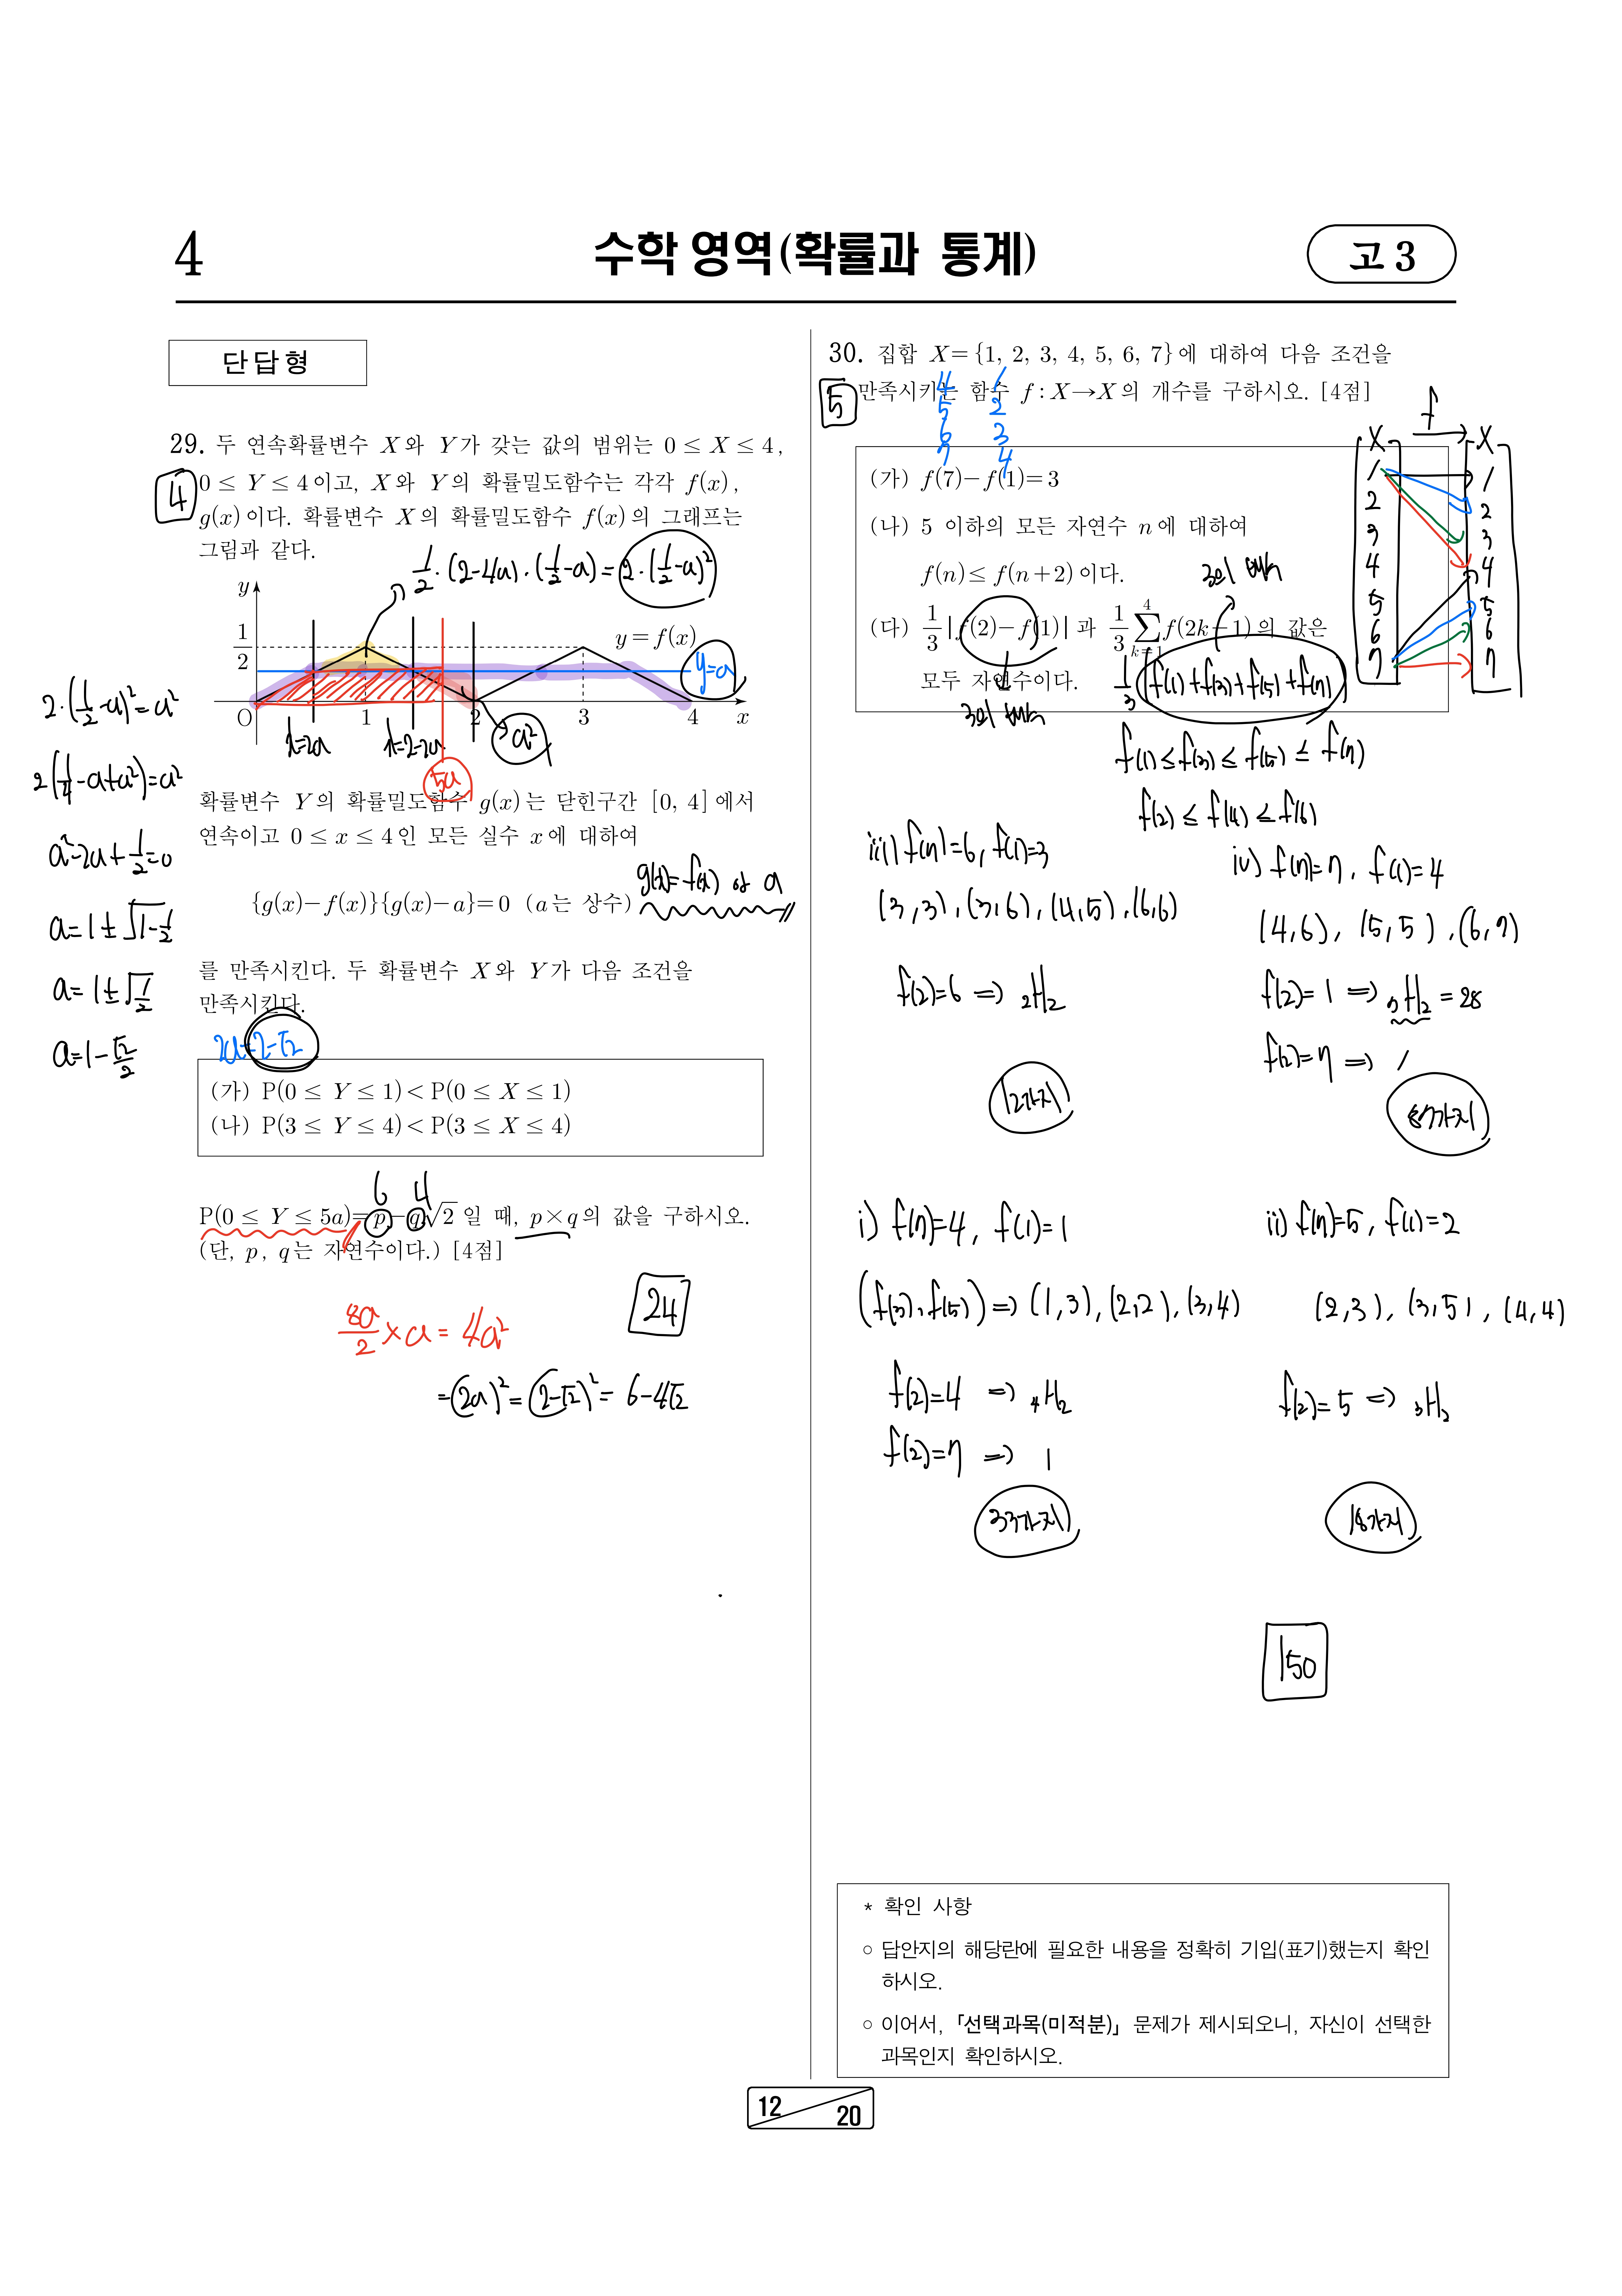 4
수학 영역(확률과 통계)
고 3
단답형
29. 두 연속확률변수 X와 Y가 갖는 값의 범위는 0 ≤ X ≤ 4,
4
0 ≤ Y ≤ 4이고, X와 Y의 확률밀도함수는 각각 f(x),
g(x)이다. 확률변수 X의 확률밀도함수 f(x)의 그래프는
그림과 같다.
1/2·(2-4a)·(1/2-a)=2·(1/2-a)²
y
1/2
y=f(x)
y=a
O 1 2 3 4 x
x=2a
x=2-2a
a²
5a
2·(1/2-a)²=a²
2(1/4-a+a²)=a²
a²-2a+1/2=0
a=1±√1-1/2
a=1±√1/2
a=1-√2/2
확률변수 Y의 확률밀도함수 g(x)는 닫힌구간 [0, 4]에서
연속이고 0 ≤ x ≤ 4인 모든 실수 x에 대하여
g(x)=f(x) or a
{g(x)-f(x)}{g(x)-a}=0 (a는 상수)
를 만족시킨다. 두 확률변수 X와 Y가 다음 조건을
만족시킨다.
2a=2-√2
(가) P(0 ≤ Y ≤ 1) < P(0 ≤ X ≤ 1)
(나) P(3 ≤ Y ≤ 4) < P(3 ≤ X ≤ 4)
6 4
P(0 ≤ Y ≤ 5a)=p-q√2 일 때, p×q의 값을 구하시오.
(단, p, q는 자연수이다.) [4점]
24
8a/2×a=4a²
=(2a)²=(2-√2)²=6-4√2
30. 집합 X={1, 2, 3, 4, 5, 6, 7}에 대하여 다음 조건을
5
만족시키는 함수 f : X→X의 개수를 구하시오. [4점]
4 1
5 2
6 3
7 4
f
X X
1 1
2 2
3 3
4 4
5 5
6 6
7 7
(가) f(7)-f(1)=3
(나) 5 이하의 모든 자연수 n에 대하여
f(n) ≤ f(n+2)이다.
3의 배수
(다) 1/3|f(2)-f(1)|과 1/3∑_{k=1}^{4}f(2k-1)의 값은
모두 자연수이다.
3의 배수
1/3(f(1)+f(3)+f(5)+f(7))
f(1)≤f(3)≤f(5)≤f(7)
f(2)≤f(4)≤f(6)
iii) f(7)=6, f(1)=3
(3,3),(3,6),(4,5),(6,6)
f(2)=6 ⇒ ₂H₂
12가지
iv) f(7)=7, f(1)=4
(4,6), (5,5), (6,7)
f(2)=1 ⇒ ₇H₂=28
f(2)=7 ⇒ 1
87가지
i) f(7)=4, f(1)=1
(f(3),f(5)) ⇒ (1,3),(2,2),(3,4)
f(2)=4 ⇒ ₄H₂
f(2)=7 ⇒ 1
33가지
ii) f(7)=5, f(1)=2
(2,3), (3,5), (4,4)
f(2)=5 ⇒ ₃H₂
18가지
150
* 확인 사항
○ 답안지의 해당란에 필요한 내용을 정확히 기입(표기)했는지 확인
하시오.
○ 이어서, 「선택과목(미적분)」 문제가 제시되오니, 자신이 선택한
과목인지 확인하시오.
12
20